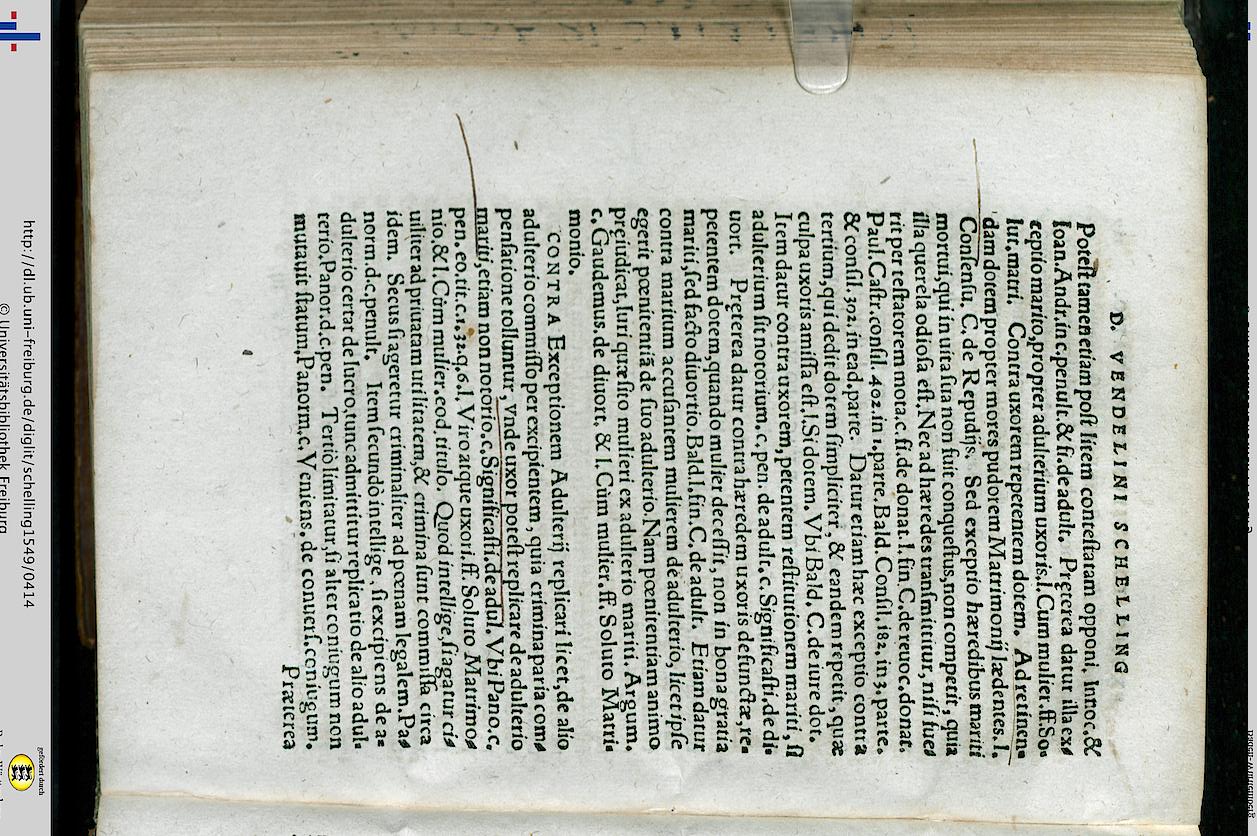 D. VENDELINI SCHELLING
Potest tamen etiam post litem contestatam opponi, Innoc. &
Ioan. Andr. in c. penult. & fi. de adult. Pręterea datur illa ex⸗
ceptio marito, propter adulterium uxoris. l. Cum mulier. ff. So⸗
lut. matri. Contra uxorem repetentem dotem. Ad retinen⸗
dam dotem propter mores pudorem Matrimonij lædentes. l.
Consensu, C. de Repudijs. Sed exceptio hæredibus mariti
mortui, qui in uita sua non fuit conquestus, non competit, quia
illa querela odiosa est. Nec ad hæredes transmittitur, nisi fue⸗
rit per testatorem mota. c. fi. de donat. l. fin. C. de reuoc. donat.
Paul. Castr. consil. 402. in 1. parte. Bald. Consil. 182, in 3. parte.
& consil. 302. in ead. parte. Datur etiam hæc exceptio contra
tertium, qui dedit dotem simpliciter, & eandem repetit, quæ
culpa uxoris amissa est. l. Si dotem. Vbi Bald. C. de iure dot.
Item datur contra uxorem, petentem restitutionem mariti, si
adulterium sit notorium. c. pen. de adult. c. Significasti, de di⸗
uort. Pręterea datur contra hæredem uxoris defunctæ, re⸗
petentem dotem, quando mulier decessit, non in bona gratia
mariti, sed facto diuortio. Bald. l. fin. C. de adult. Etiam datur
contra maritum accusantem mulierem de adulterio, licet ipse
egerit pœnitentiā de suo adulterio. Nam pœnitentiam animo
pręiudicat, Iuri quæsito mulieri ex adulterio mariti. Argum.
c. Gaudemus, de diuort. & l. Cùm mulier. ff. Soluto Matri⸗
monio.
CONTRA Exceptionem Adulterij replicari licet, de alio
adulterio commisso per excipientem, quia crimina paria com⸗
pensatione tolluntur, Vnde uxor potest replicare de adulterio
mariti, etiam non notorio. c. Significasti. de adul. Vbi Pano. c.
pen. eo. tit. c. 1. 32. q. 6. l. Viro atque uxori. ff. Soluto Matrimo⸗
nio, & l. Cùm mulier. eod. titulo. Quod intellige, si agatur ci⸗
uiliter ad priuatam utilitatem, & crimina sunt commissa circa
idem. Secus si ageretur criminaliter ad pœnam legalem. Pa⸗
norm. d. c. penult. Item secundò intellige, si excipiens de a⸗
dulterio certat de lucro, tunc admittitur replicatio de alio adul⸗
terio. Panor. d. c. pen. Tertiò limitatur, si alter coniugum non
mutauit statum. Panorm. c. Veniens. de conuers. coniugum.
Præterea
http://dl.ub.uni-freiburg.de/diglit/schelling1549/0414
© Universitätsbibliothek Freiburg
gefördert durch